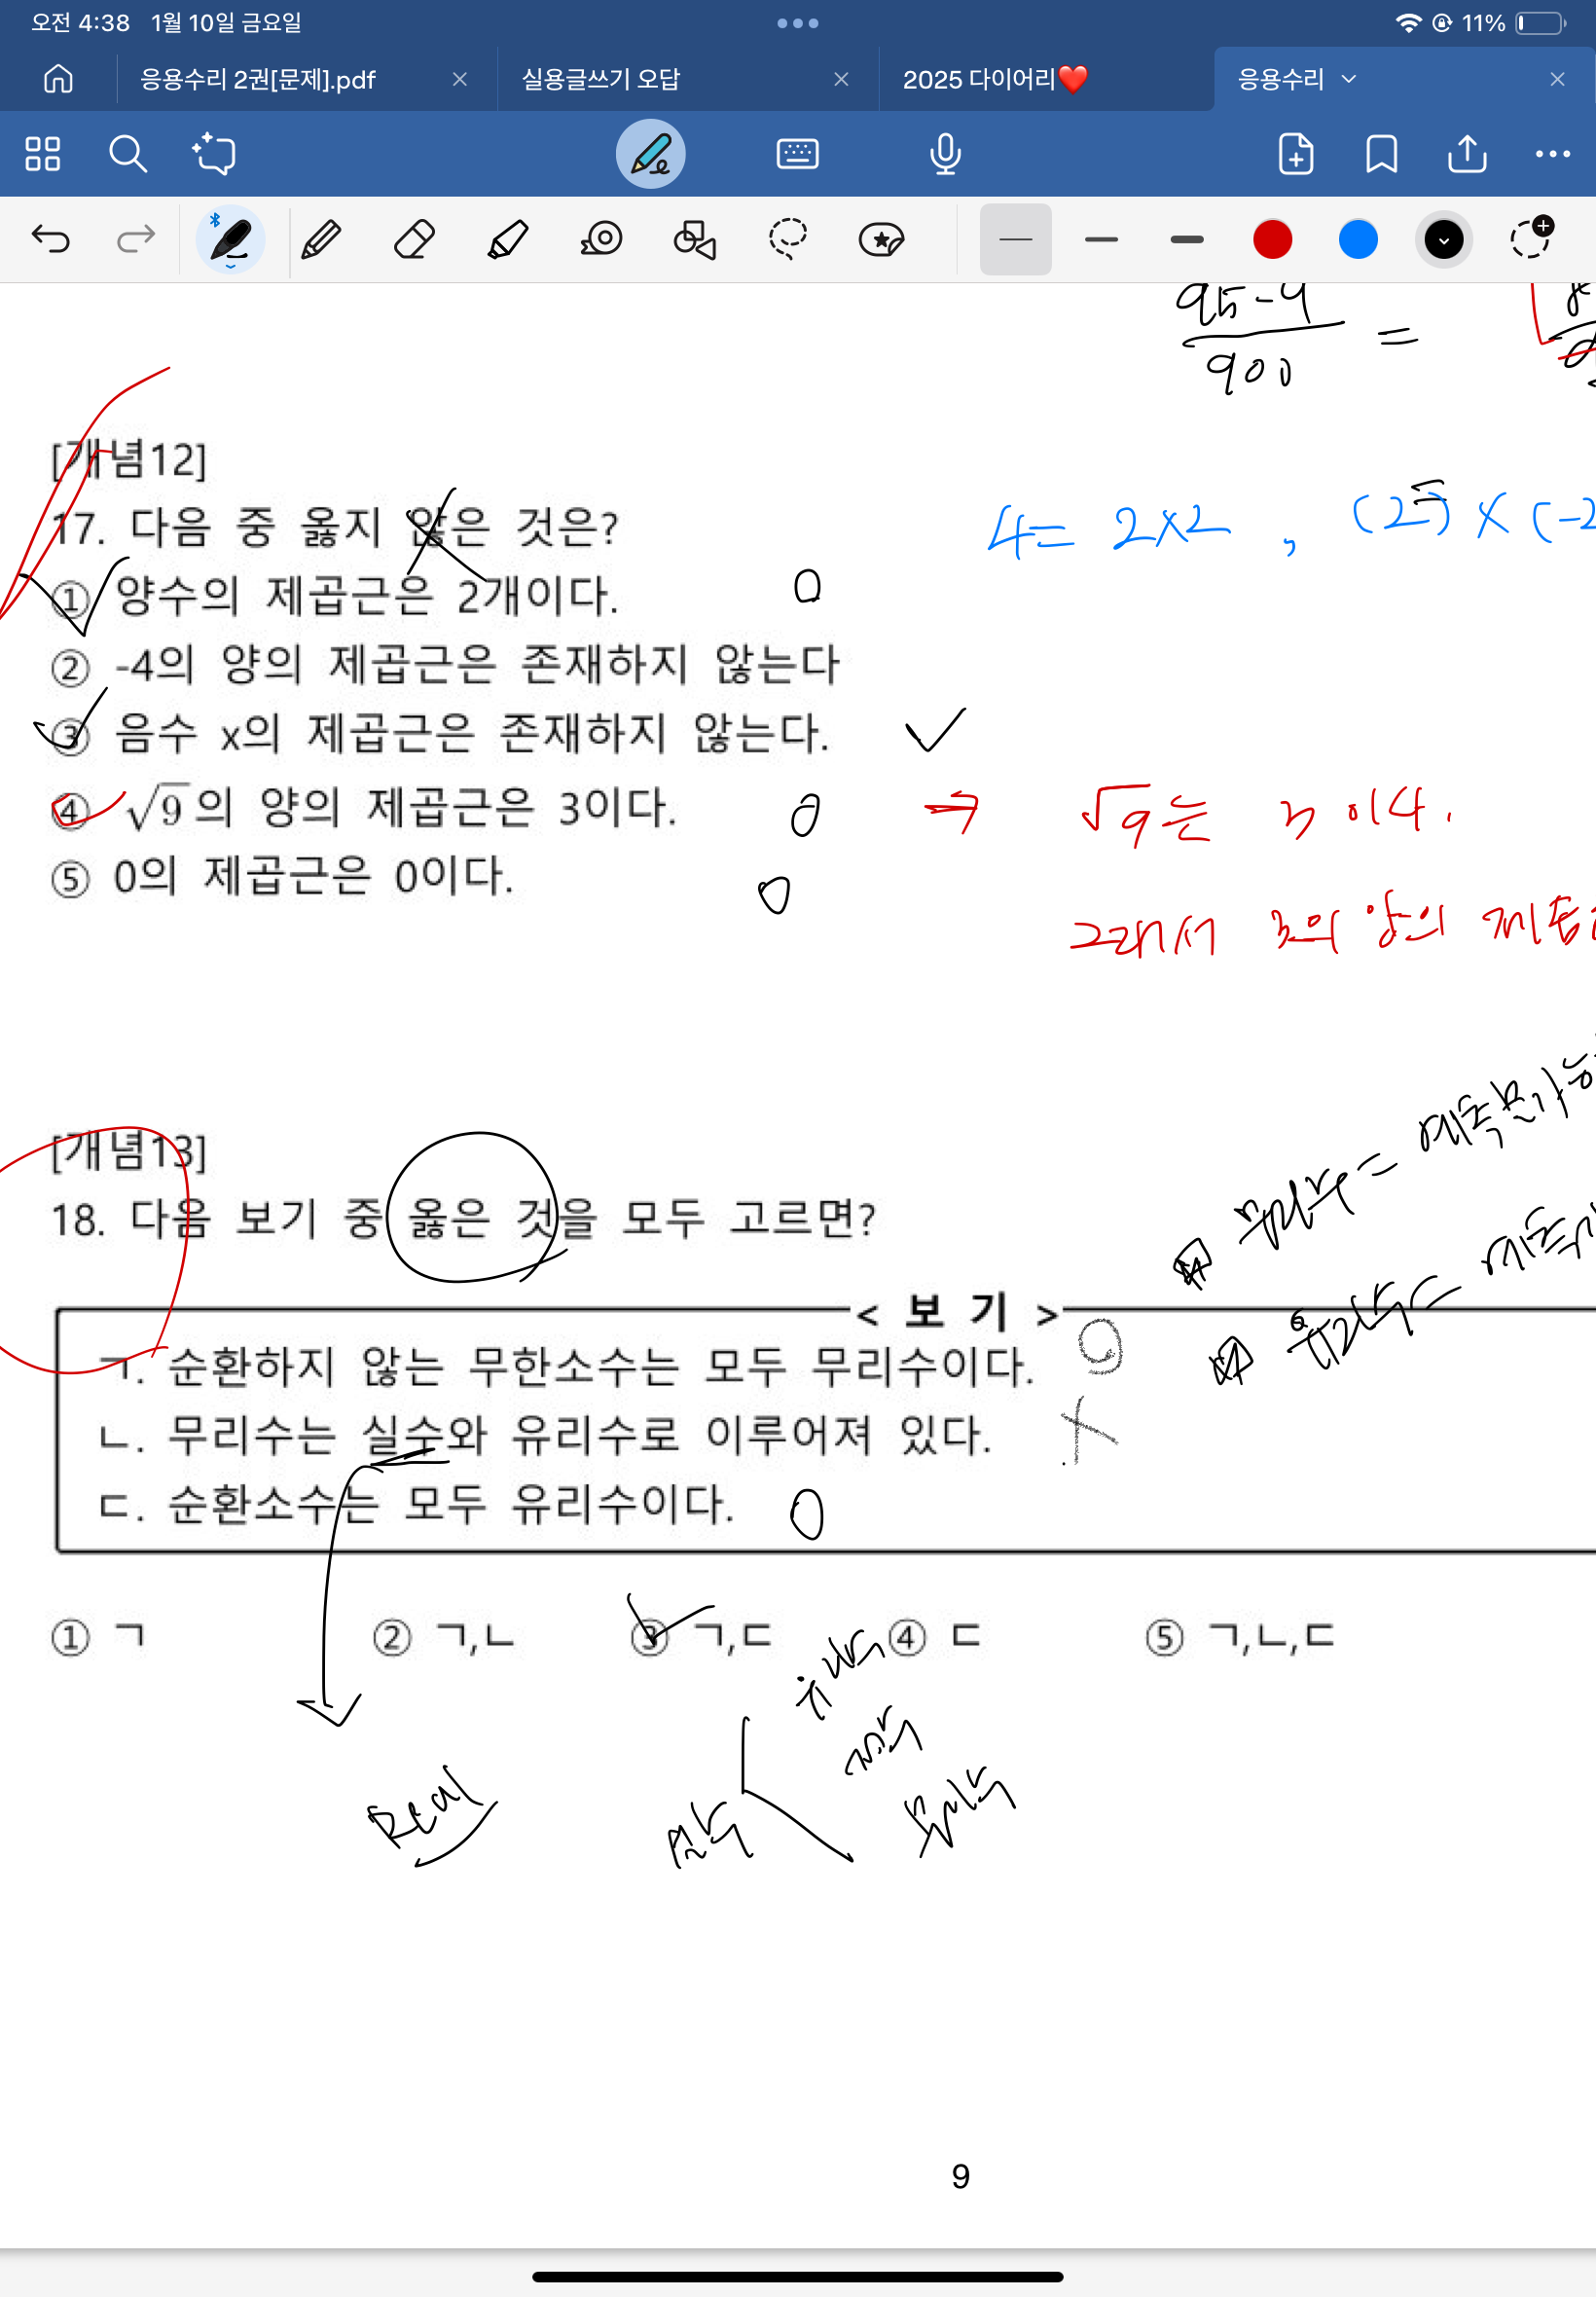 오전 4:38 1월 10일 금요일 11%
응용수리 2권[문제].pdf 실용글쓰기 오답 2025 다이어리❤️ 응용수리
95-9
900 =
[개념12]
17. 다음 중 옳지 않은 것은?
4= 2×2 , (2) × (-2
① 양수의 제곱근은 2개이다.
② -4의 양의 제곱근은 존재하지 않는다
③ 음수 x의 제곱근은 존재하지 않는다.
④ √9의 양의 제곱근은 3이다. → √9는 3 이다.
⑤ 0의 제곱근은 0이다.
그래서 3의 양의 제곱
[개념13]
18. 다음 보기 중 옳은 것을 모두 고르면?
무리수=
유리수=
< 보 기 >
ㄱ. 순환하지 않는 무한소수는 모두 무리수이다.
ㄴ. 무리수는 실수와 유리수로 이루어져 있다. X
ㄷ. 순환소수는 모두 유리수이다. O
① ㄱ ② ㄱ,ㄴ ③ ㄱ,ㄷ ④ ㄷ ⑤ ㄱ,ㄴ,ㄷ
Real
실수
무리수
9